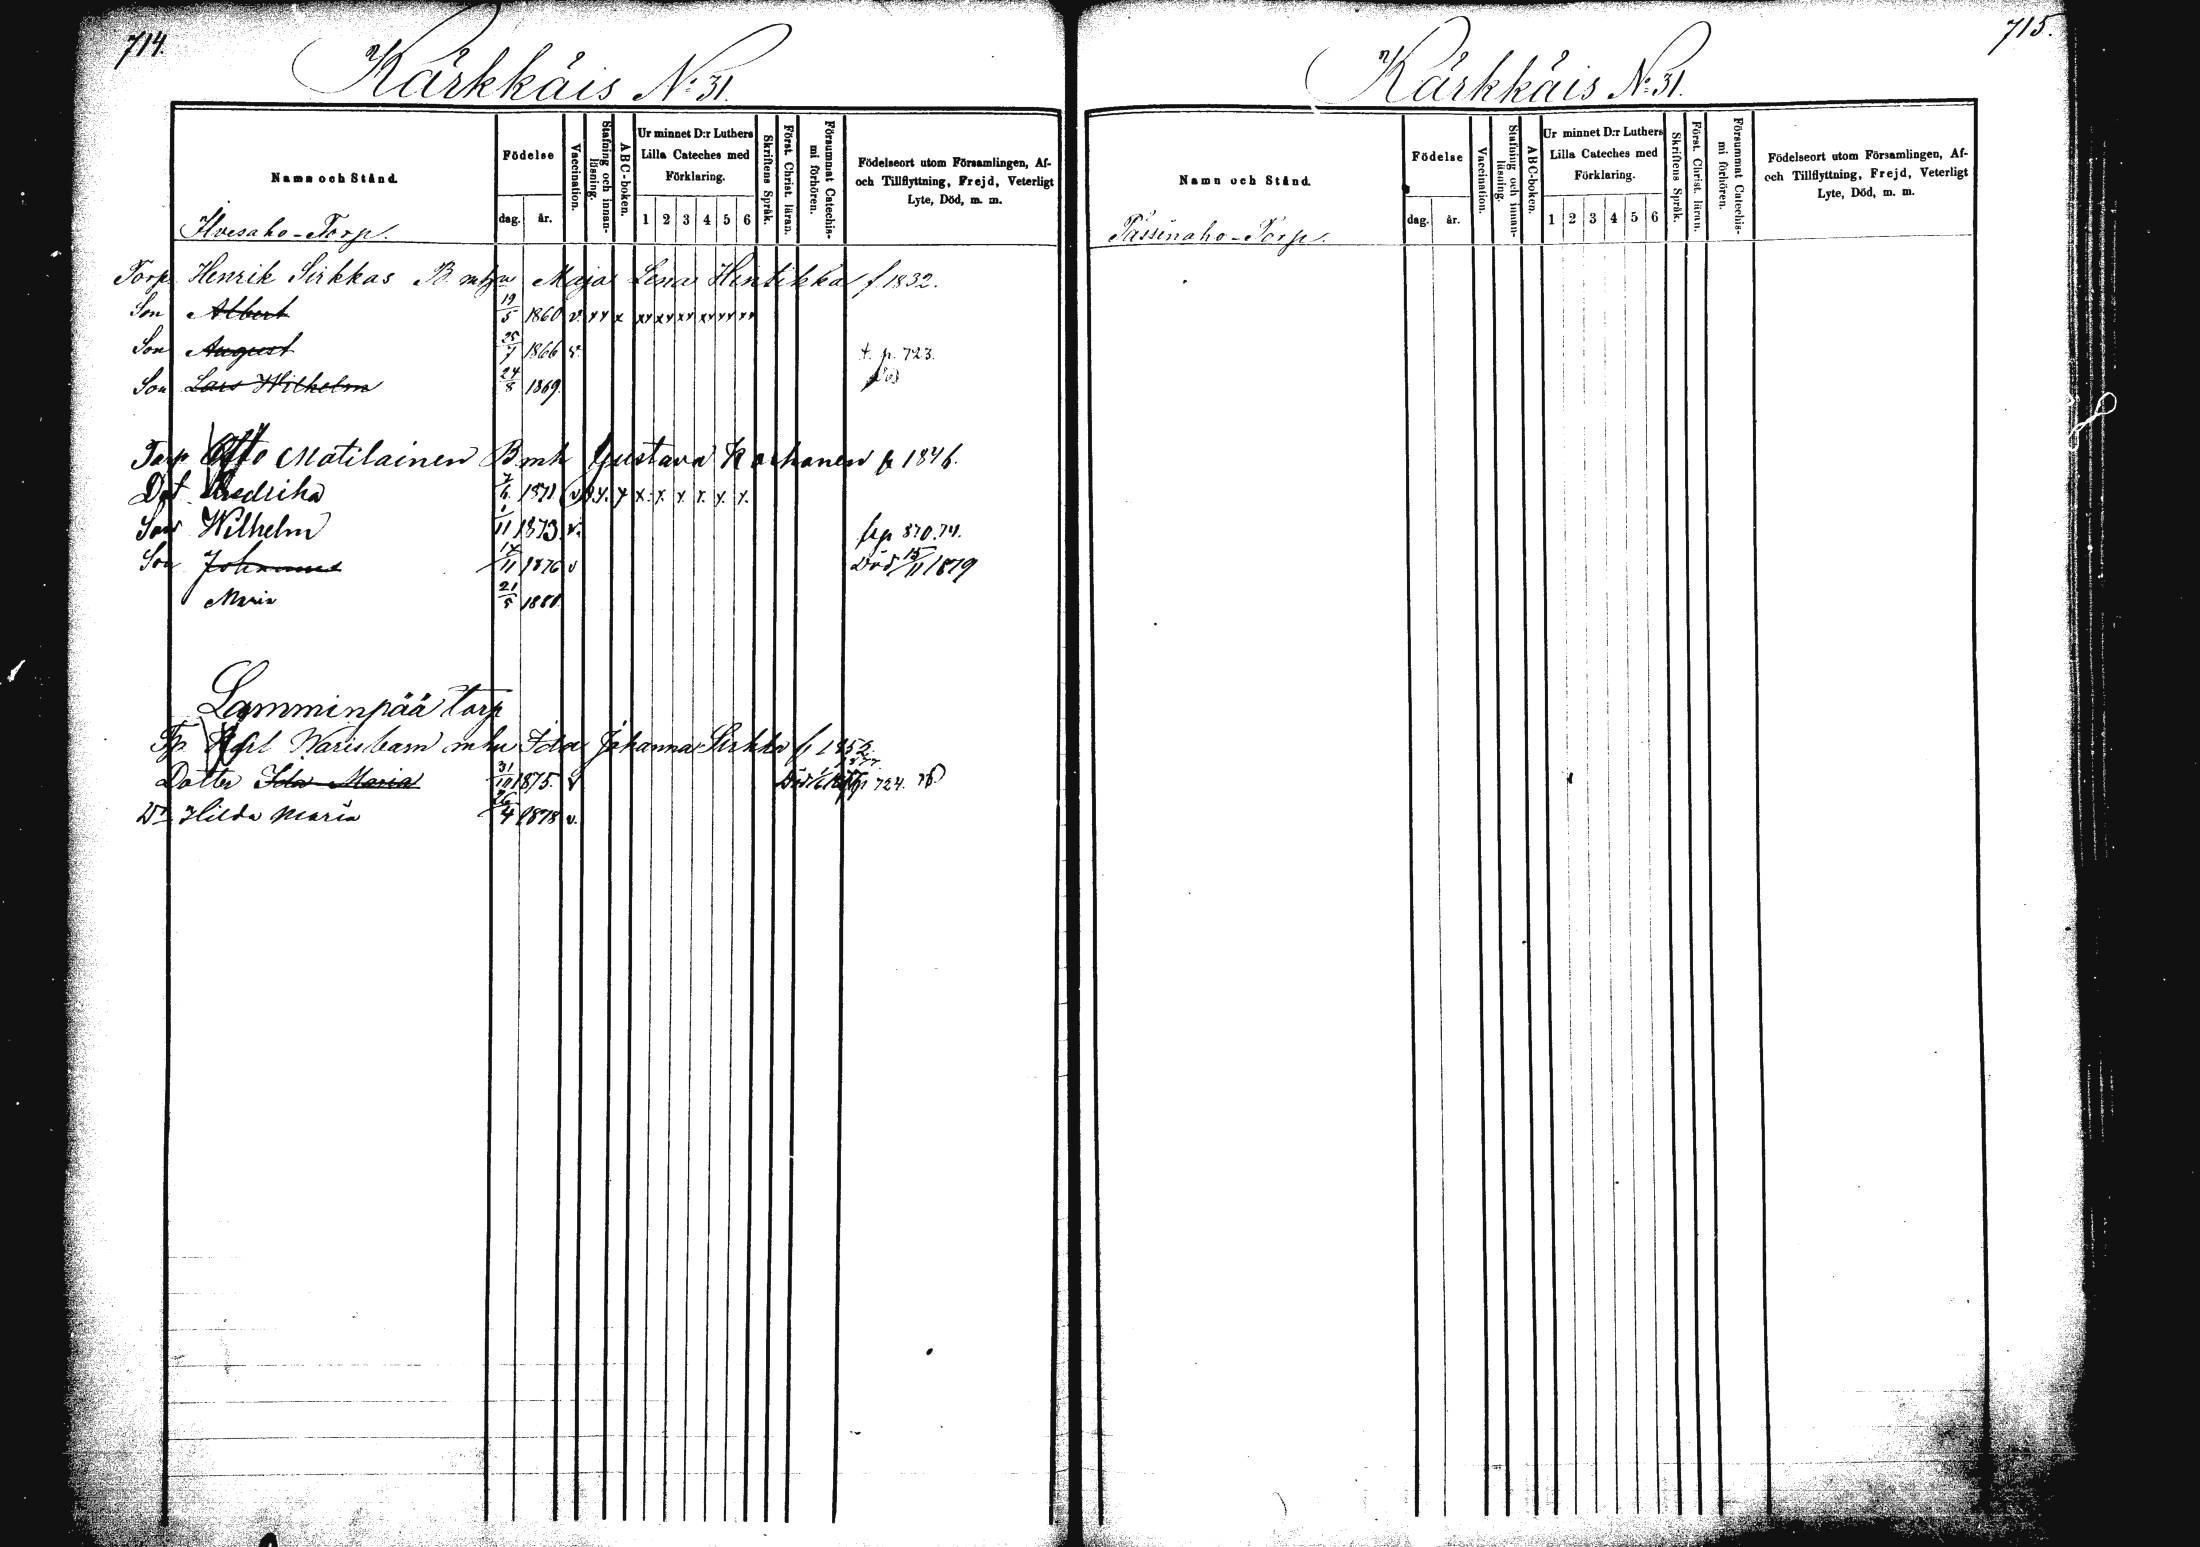 714.
Kärkkäis No 31.
Namn och Stånd.
Födelse
dag.
år.
Vaccination.
Stafning och innan-
läsning.
ABC-boken.
Ur minnet D:r Luthers
Lilla Cateches med
Förklaring.
1 2 3 4 5 6
Skriftens Språk.
Först. Christ. läran.
Försummat Catechis-
mi förhören.
Födelseort utom Församlingen, Af-
och Tillflyttning, Frejd, Veterligt
Lyte, Död, m. m.
Ilvesaho-Torp.
Torp. Henrik Sirkkas B. Maja Lena Hintikka f 1832.
Son Albert 19/5 1860 v. xx x xx xx xx xx xx xx
Son August 25/7 1866 v. t. p. 723.
Son Lars Wilhelm 24/8 1869. Död
Torp Otto Matilainen B mh Gustava Korhonen f 1846.
Dot Fredrika 7/6 1871 v x.x. x x. x. x. x. x. x.
Son Wilhelm 1/11 1873. v. frp 870.74.
Son Johannes 14/11 1876 v Död 15/11 1879
Maria 21/5 1880
Lamminpää torp
Tp. Karl Ida Johanna Sirkka f 1852
Dotter Ida Maria 31/10 1875. v Död 724.
Dr Hilda Maria 26/4 1878 v.
715.
Kärkkäis No 31.
Namn och Stånd.
Födelse
dag.
år.
Vaccination.
Stafning och innan-
läsning.
ABC-boken.
Ur minnet D:r Luthers
Lilla Cateches med
Förklaring.
1 2 3 4 5 6
Skriftens Språk.
Först. Christ. läran.
Försummat Catechis-
mi förhören.
Födelseort utom Församlingen, Af-
och Tillflyttning, Frejd, Veterligt
Lyte, Död, m. m.
Pässinaho-Torp.